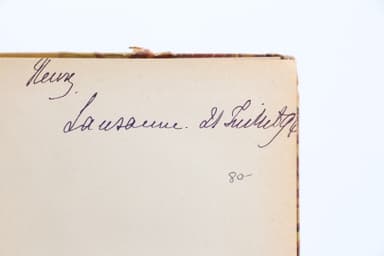 Henry.
Lausanne. 21 Juillet 96
80-